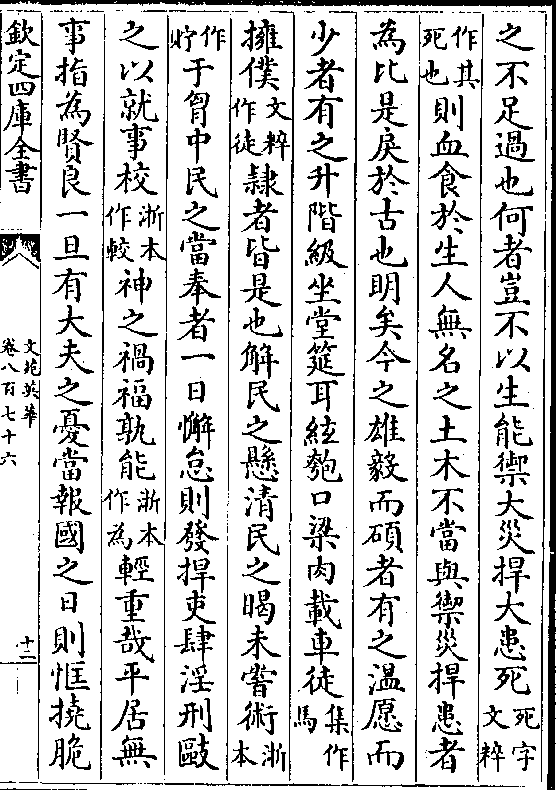 之不足過也何者豈不以生能禦大災捍大患死死字文粹
作其死也則血食於生人無名之土木不當與禦災捍患者
為比是戾於古也明矣今之雄毅而碩者有之温愿而
少者有之升階級坐堂筵耳絃匏口梁肉載車徒集作馬
擁僕文粹作徒隷者皆是也解民之懸清民之暍未嘗術浙本
作貯于胷中民之當奉者一日懈怠則發捍吏肆淫刑敺
之以就事校浙本作較神之禍福孰能浙本作為輕重哉平居無
事指為賢良一旦有大夫之憂當報國之日則恇撓脆
欽定四庫全書
文苑英華
卷八百七十六
十二